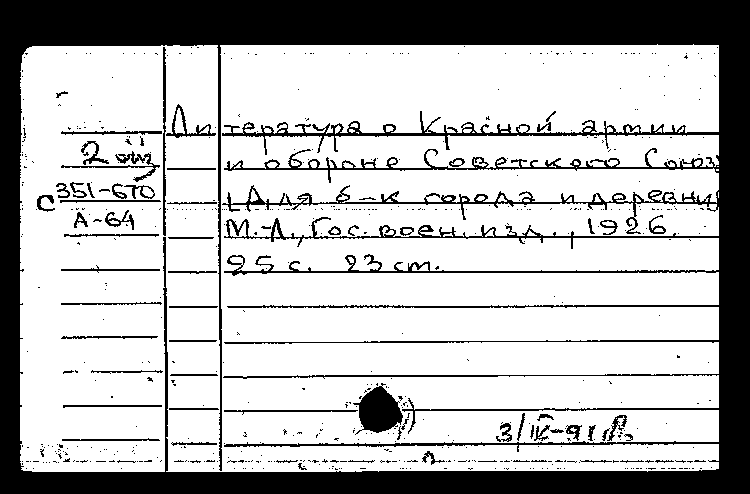 Литература о Красной армии
и обороне Советского Союз
[Для б-к города и деревни]
М.-Л., Гос. воен. изд., 1926.
25 с. 23 cm.
2
С 351-670
А-64
3/IV-91